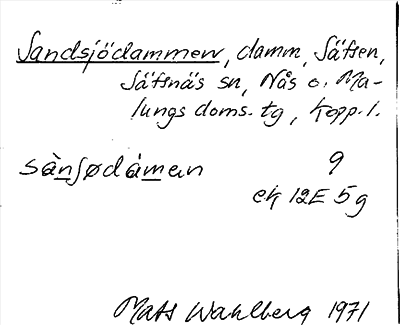 Sandsjödammen, damm, Säfsen,
Säfsnäs sn, Nås o. Ma-
lungs doms. tg, Kopp. l.
sànsødàmen 9
ek 12E 5g
Mats Wahlberg 1971